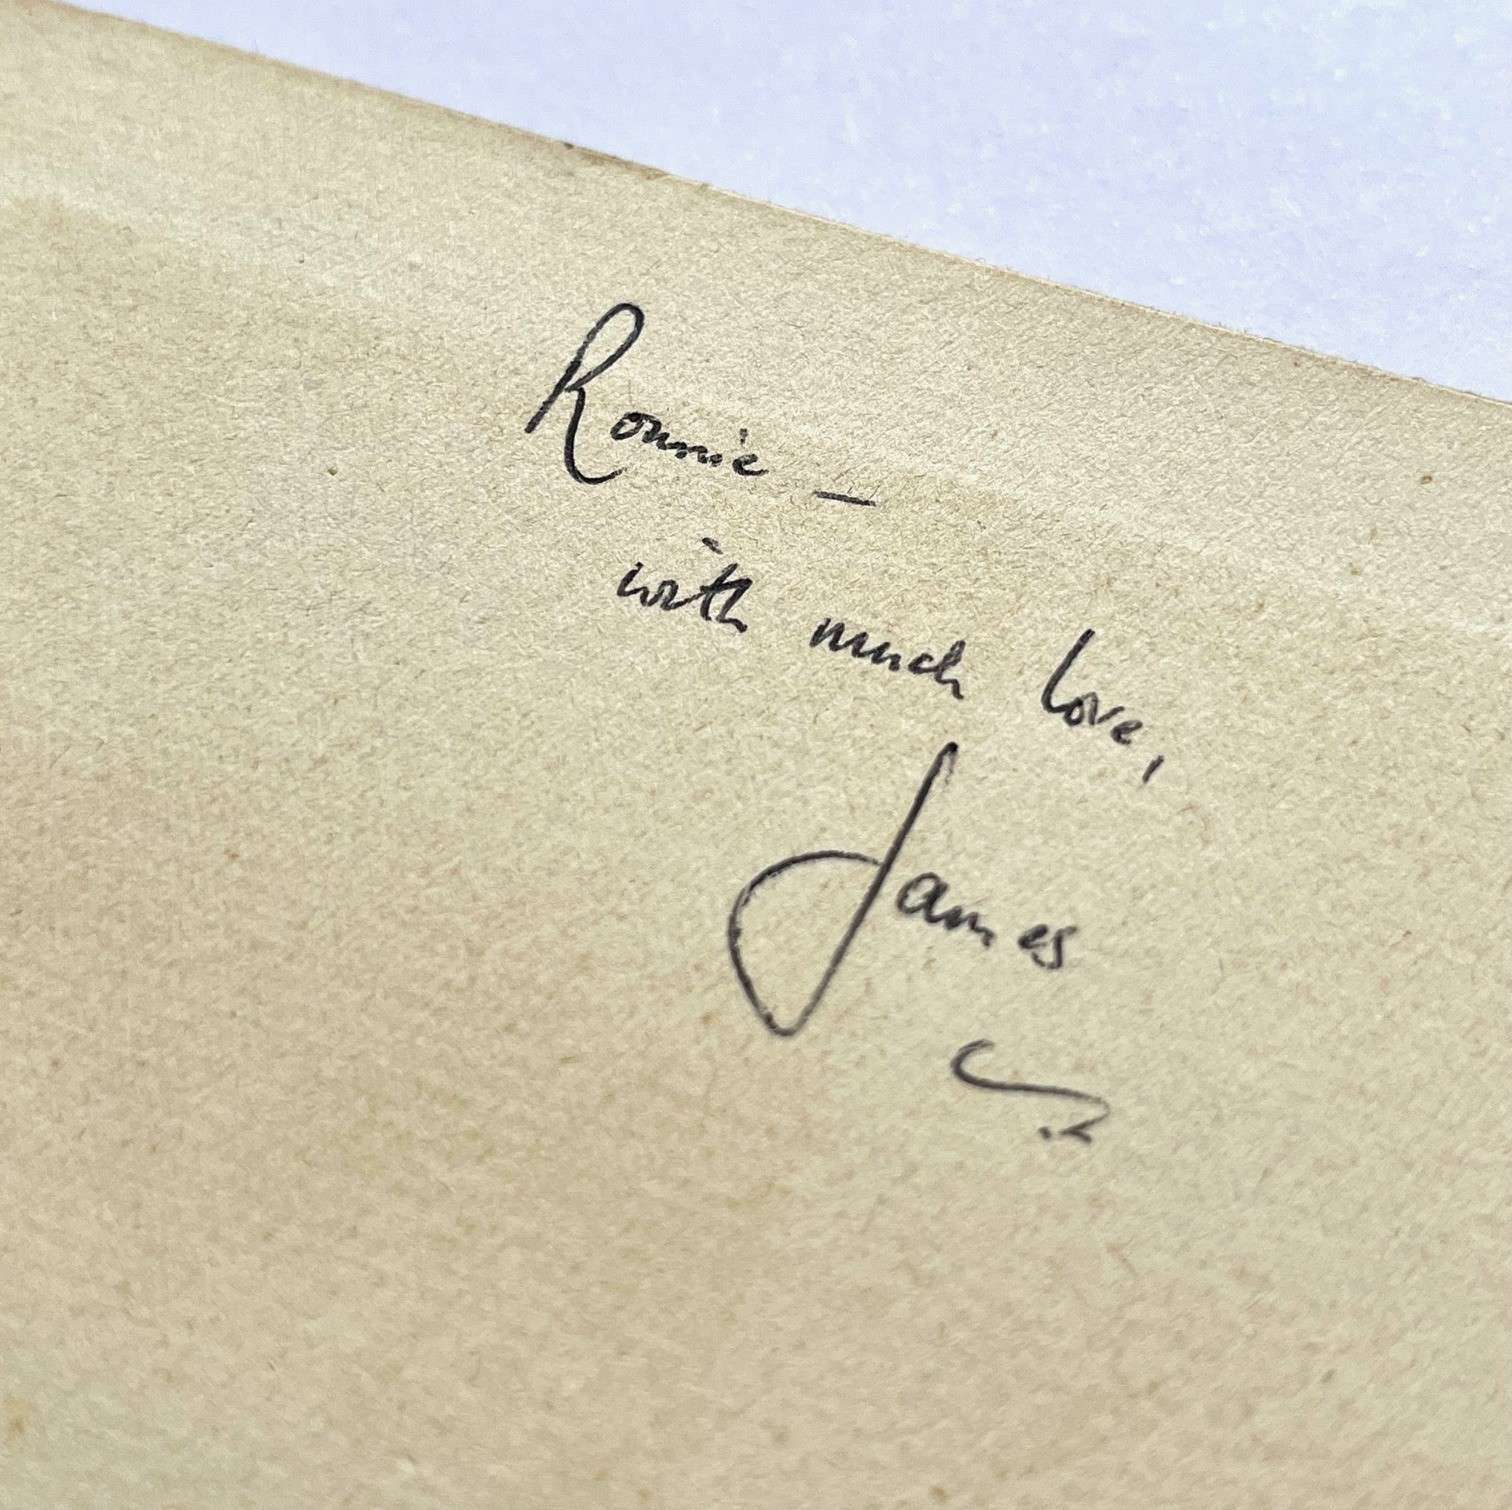 Ronnie –
with much love,
James